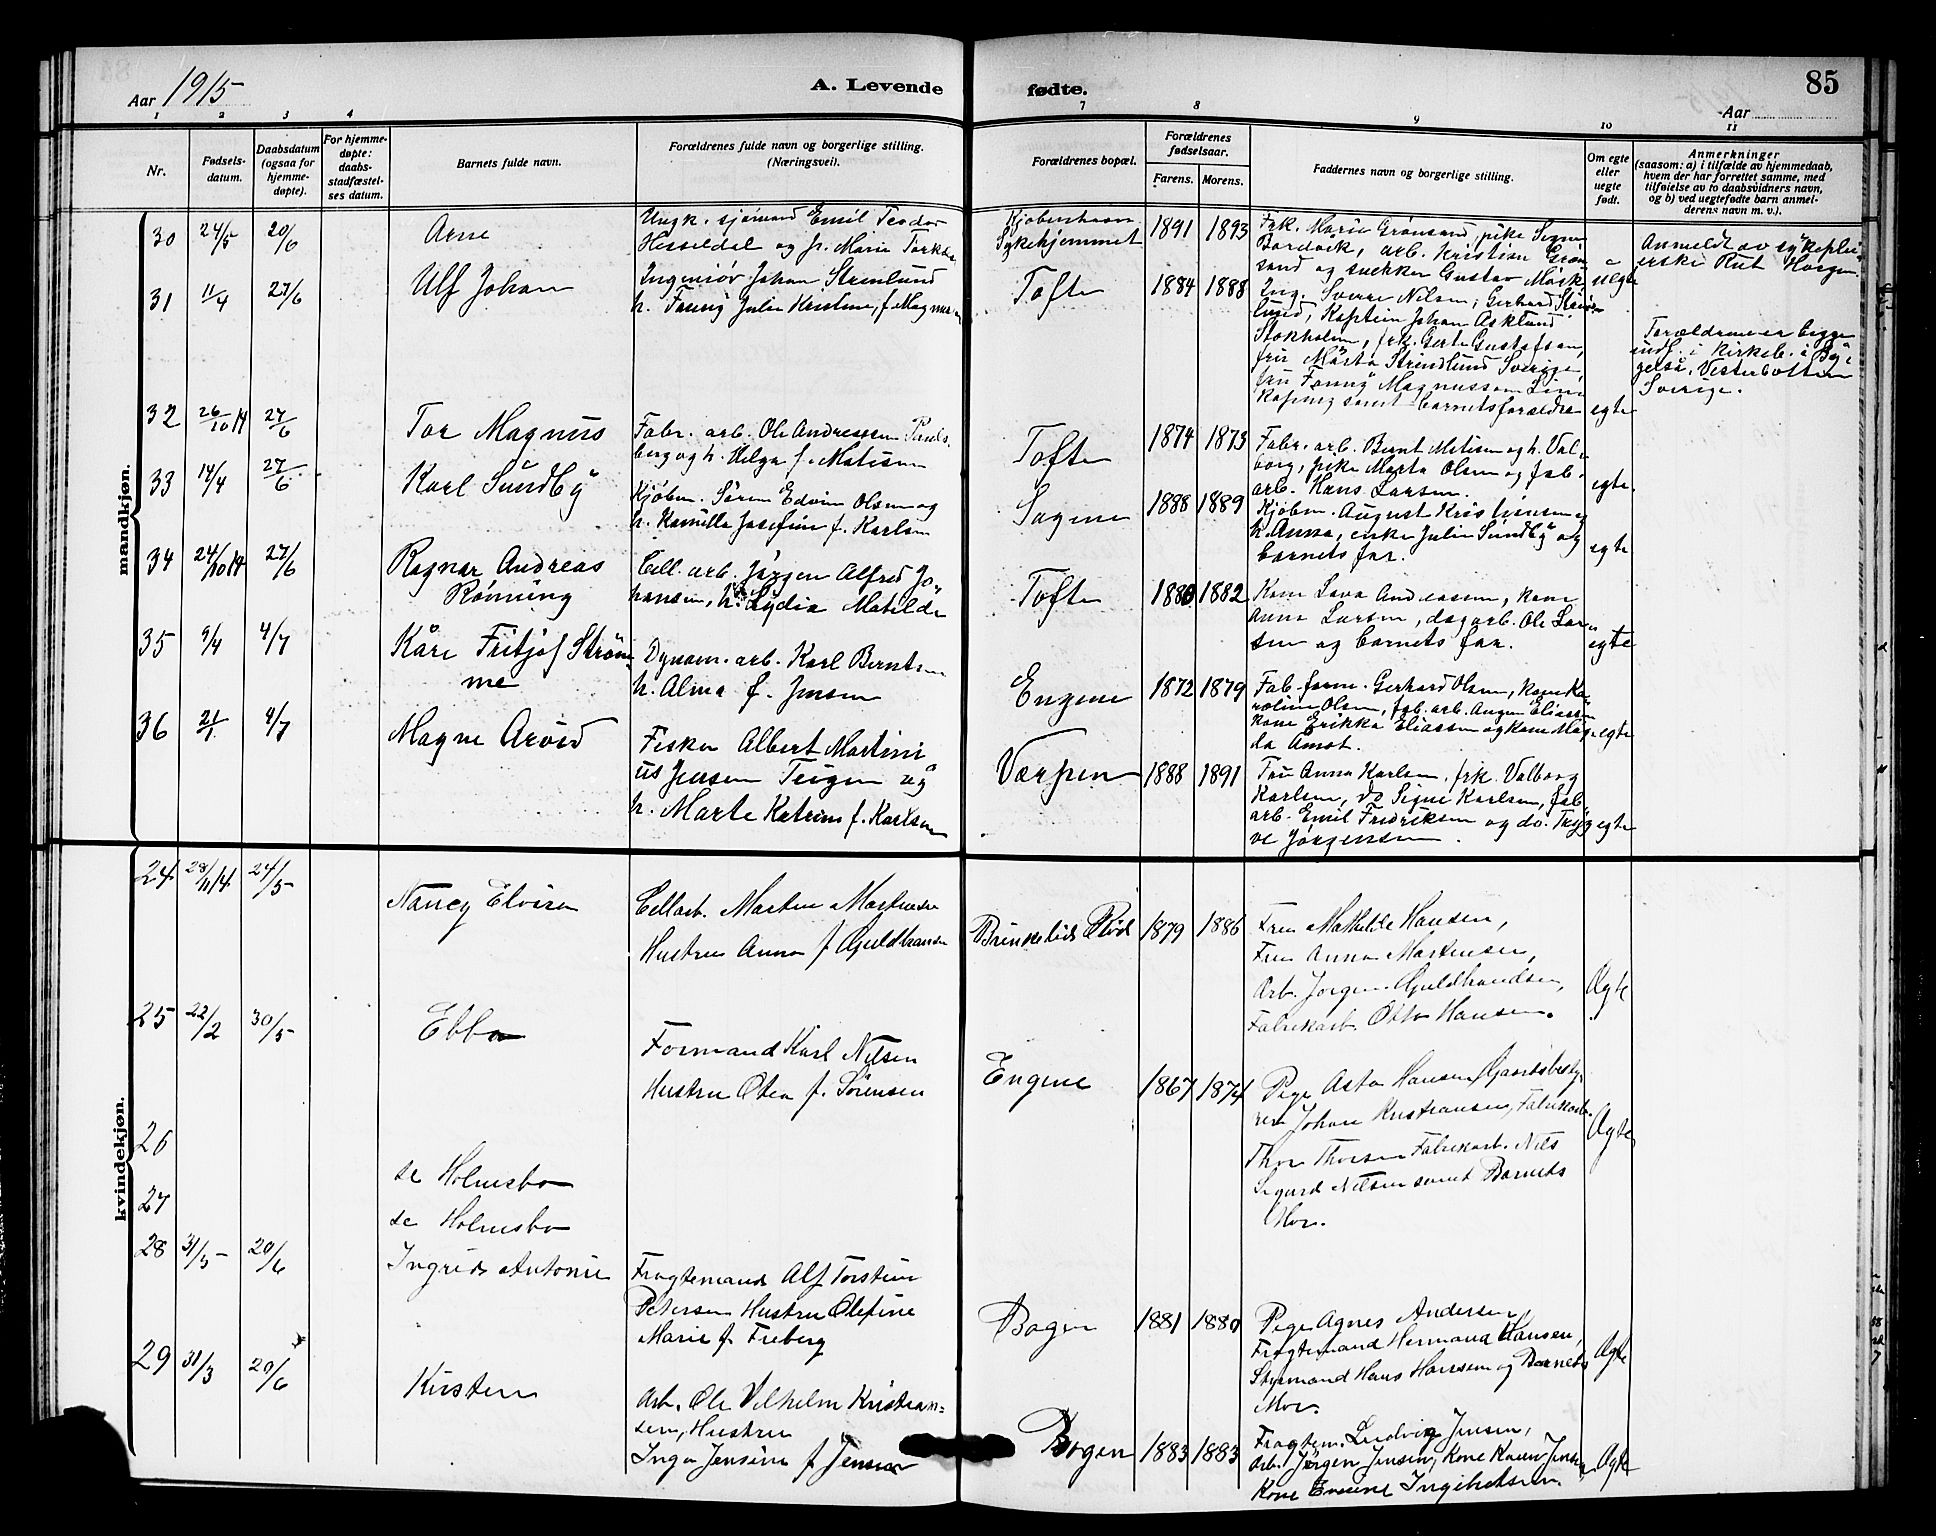 Aar 1915
A. Levende
fødte.
85
Aar
1 2 3 4 7 8 9 10 11
Nr.
Fødsels-
datum.
Daabsdatum
(ogsaa for
hjemme-
døpte).
For hjemme-
døpte:
daabs-
stadfæstel-
ses datum.
Barnets fulde navn.
Forældrenes fulde navn og borgerlige stilling.
(Næringsvei).
Forældrenes bopæl.
Forældrenes
fødselsaar.
Farens. Morens.
Faddernes navn og borgerlige stilling.
Om egte
eller
uegte
født.
Anmerkninger
(saasom: a) i tilfælde av hjemmedaab,
hvem der har forrettet samme, med
tilføielse av to daabsvidners navn,
og b) ved uegtefødte barn anmel-
derens navn m. v.).
mandkjøn.
30 24/5 20/6 Arne
Ungk. sjömand Emil Teodor
Hesseldal og p. Marie
Kjøbenhavn
Sykehjemmet
1891 1893
Frk. Marie Grönsand, pike Signe
Bardvik, arb. Kristian Grön
sand og snekker Gustav Mörk
uegte
Anmeldt av sykeplei-
erske Rut Horgen
31 11/4 27/6 Ulf Johan
Ingeniör Johan Strinlund
h. Fanny Julia Kristina, f. Magnusson
Tofte
1884 1888
Ing. Sverre Nilsen, Gerhard Strind
lund, Kaptein Johan Asklund
Stokholm, frk. Gerte Gustafson,
fru Märta Strindlund Sverige,
fru Fanny Magnusson Lin
köping samt barnets forældre
egte
Forældrene er begge
indf. i kirkeb. i Byg
gelså, Vesterbotten
Sverige.
32 26/10 14 27/6 Tor Magnus
Fabr. arb. Ole Andreassen Pauls
berg og h. Helga f. Matisen
Tofte
1874 1873
Fabr. arb. Bernt Mitisen og h. Val
borg, pike Marta Olsen og fab.
arb. Hans Larsen.
egte.
33 14/4 27/6 Karl Sundby
Kjöbm. Sören Edvin Olsen og
h. Kamilla Josefine f. Karlsen
Sagene
1888 1889
Kjöbm. August Kristensen og
h. Anna, enke Julie Sundby og
barnets far.
egte
34 24/10 14 27/6 Ragnar Andreas
Rönning
Cell. arb. Jörgen Alfred Jo
hansen, h. Lydia Matilde
Tofte
1880 1882
Kone Lava Andreassen, kone
Anna Larsen, dagarb. Ole Lar
sen og barnets far.
egte
35 9/4 4/7 Kåre Fritjof Ström
me
Dynam. arb. Karl Berntsen
h. Alma f. Jensen
Engene
1872 1879
Fab. form. Gerhard Olsen, kone Ka
roline Olsen, fab. arb. Angen Eliassen
kone Erikka Eliassen og kone Mag
da Amot.
egte
36 21/1 4/7 Magne Arvid
Fisker Albert Martini
us Jensen Teigen og
h. Marte Katrine f. Karlsen
Værpen
1888 1891
Fru Anna Karlsen, frk. Valborg
Karlsen, do Signe Karlsen, fab
arb. Emil Fredriksen og do. Tryg
ve Jörgensen.
egte
kvindekjøn.
24 28/11 14 24/5 Nancy Elvira
Cellarb. Martin Martinsen
Hustru Anna f Guldbransen
Rød
1879 1886
Fru Mathilde Hansen,
Fru Anna Martinsen,
Arb. Jorgen Guldbrandsen,
Fabrikarb Otto Hansen.
Ægte
25 22/2 30/5 Ebba
Formand Karl Nilsen
Hustru Otea f. Sörensen
Engene
1867 1874
Pige Asta Hansen, Gaardsbesty
rer Johan Kristiansen, Fabrikarb.
Thor Thorsen Fabrikarb. Nils
Sigurd Nilsen samt Barnets
Mor.
Ægte
26
se Holmsbo
27
se Holmsbo
28 31/3 20/6 Ingrid Antonie
Fragtemand Alf Torstein
Petersen Hustru Olefine
Marie f. Freberg
Bogen
1881 1880
Pige Agnes Andersen
Fragtemand Hermand Hansen,
Styrmand Hans Hansen og Barnets
Mor.
Ægte
29 31/3 20/6 Kirsten
Arb. Ole Vilhelm Kristian=
sen, Hustru
Inga Jensine f Jensen
Bogen
1883 1883
Fragtem. Ludvig Jensen,
Arb. Jörgen Jensen, Kone Karen Jensen
Kone Evensine Ingebretsen.
Ægte